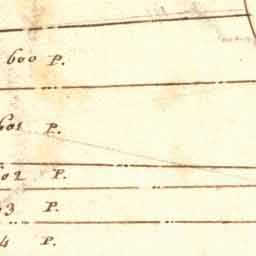 600 P.
601 P.
602 P.
03 P.
4 P.